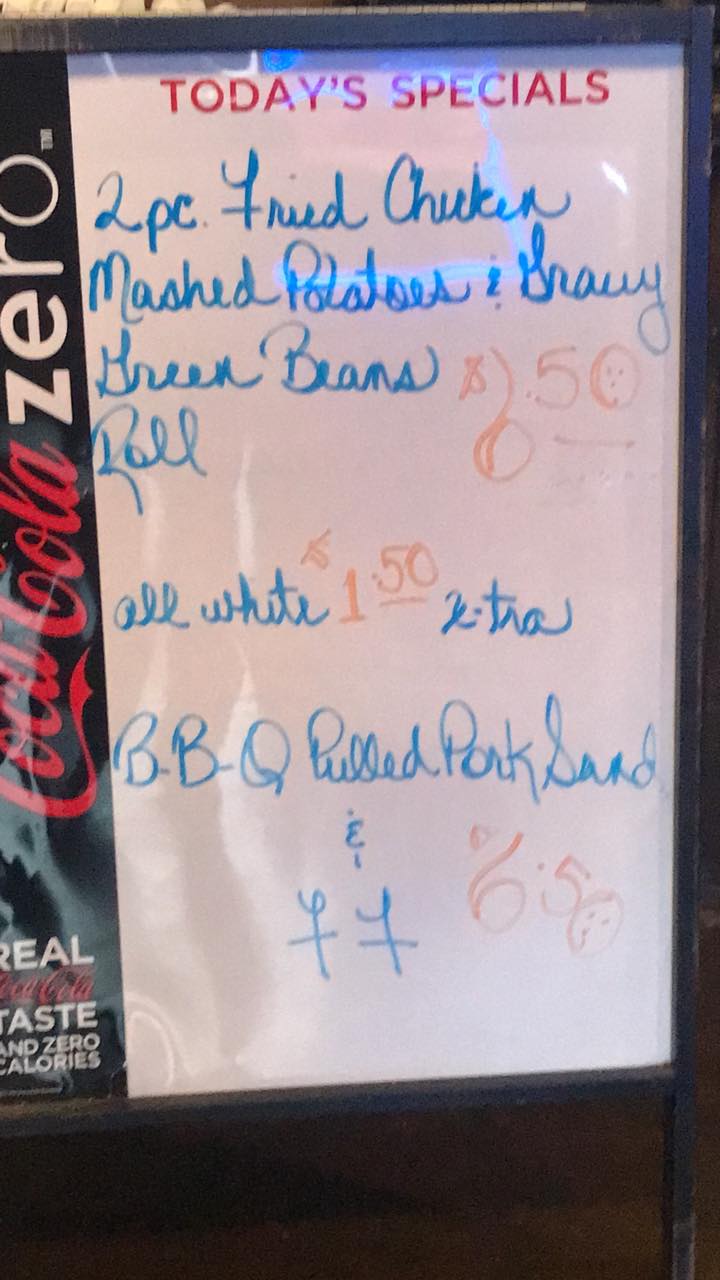 TODAY'S SPECIALS
2 pc. Fried Chicken
Mashed Potatoes & Gravy
Green Beans $8.50
Roll
all white $1.50 x-tra
B-B-Q Pulled Pork Sand
&
6.50
FF
Coca-Cola zero™
REAL
Coca-Cola
TASTE
AND ZERO
CALORIES